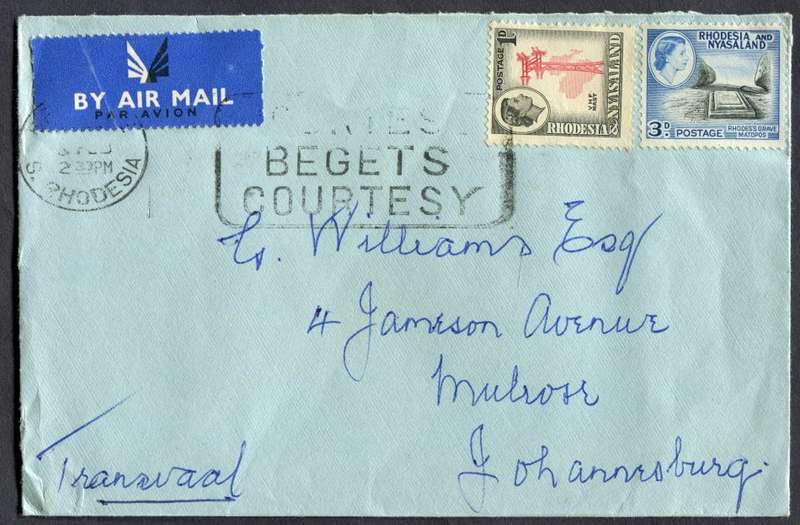 BY AIR MAIL
PAR AVION
2 30PM
S. RHODESIA
BEGETS
COURTESY
POSTAGE
1D
RHODESIA &
NYASALAND
RHODESIA AND
NYASALAND
3D.
POSTAGE
RHODES'S GRAVE
MATOPOS
G. Williams Esq
4 Jameson Avenue
Mulrose
Johannesburg.
Transvaal